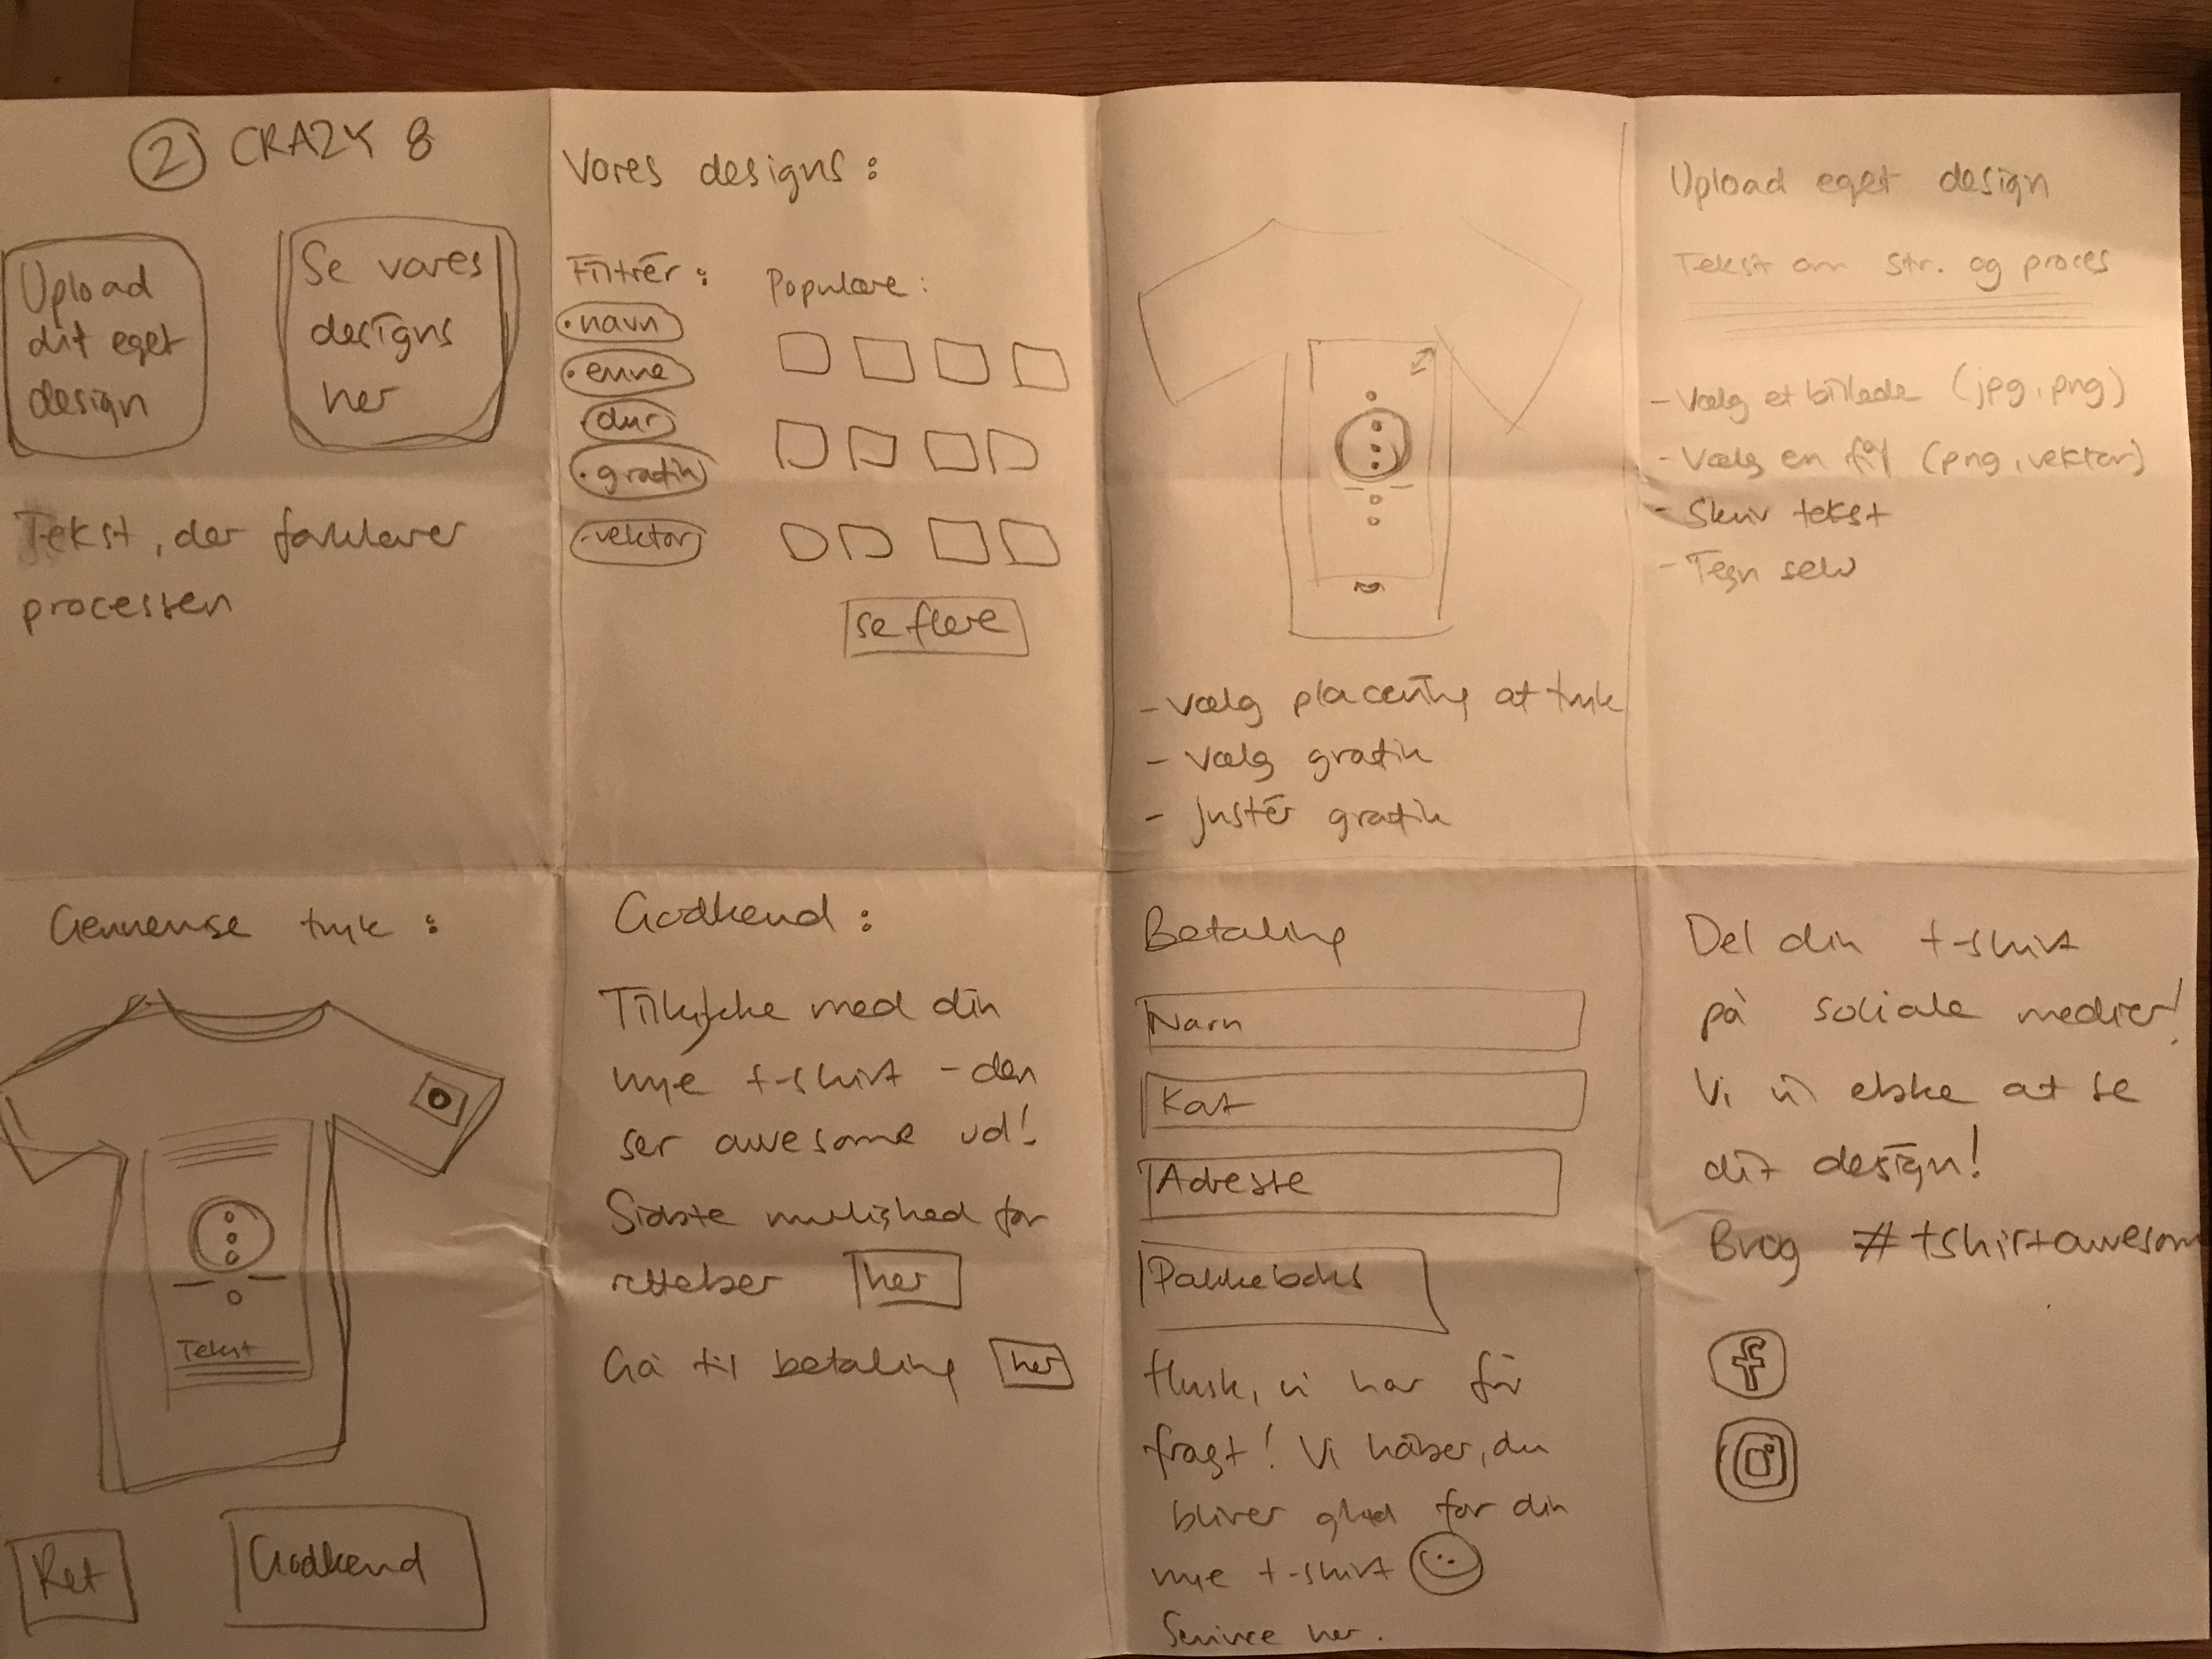 2 CRAZY 8
Upload
dit eget
design
Se vores
designs
her
Tekst, der forklarer
processen
Vores designs:
Filtrér:
• navn
• emne
dyr
• grafik
- vektor
Populære:
se flere
- Vælg placering af tryk
- Vælg grafik
- Justér grafik
Upload eget design
Tekst om str. og proces
- Vælg et billede (jpg, png)
- Vælg en fil (png, vektor)
- Skriv tekst
- Tegn selv
Gennemse tryk:
Tekst
Ret
Godkend
Godkend:
Tillykke med din
nye t-shirt - den
ser awesome ud!
Sidste mulighed for
rettelser her
Gå til betaling her
Betaling
Navn
Kort
Adresse
Pakkeboks
Husk, vi har fri
fragt! Vi håber, du
bliver glad for din
nye t-shirt
Service her.
Del din t-shirt
på sociale medier!
Vi vil elske at se
dit design!
Brug #tshirtawesom
f